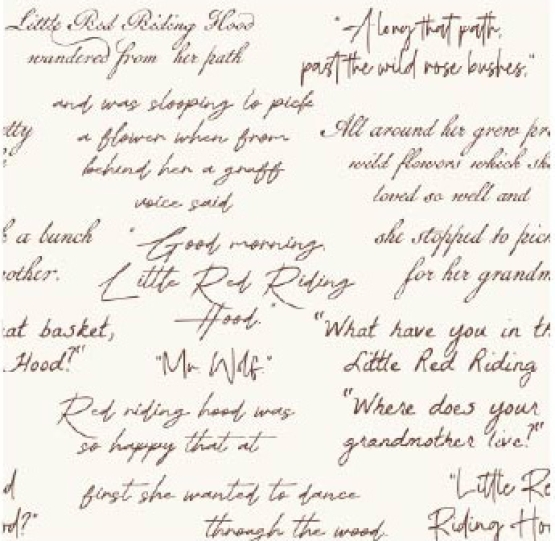 Little Red Riding Hood
wandered from her path
and was stooping to pick
a flower when from
behind her a gruff
voice said
"Good morning,
Little Red Riding
Hood."
"Mr Wolf"
Red riding hood was
so happy that at
first she wanted to dance
through the wood
"Along that path,
past the wild rose bushes."
All around her grew pr
wild flowers which sh
loved so well and
she stopped to pic
for her grandm
"What have you in th
Little Red Riding
"Where does your
grandmother live?"
"Little Re
Riding Ho
etty
k a bunch
other.
at basket,
Hood?"
d
od?"